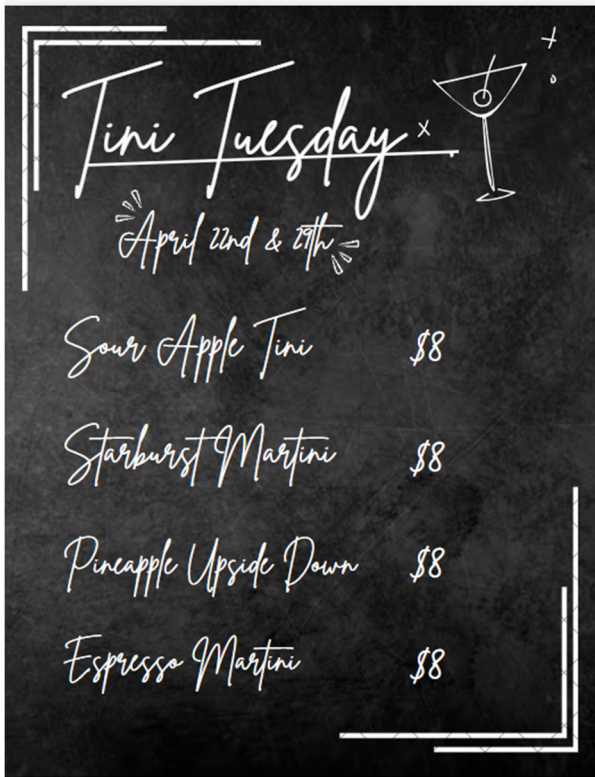 Tini Tuesday
April 22nd & 29th
Sour Apple Tini $8
Starburst Martini $8
Pineapple Upside Down $8
Espresso Martini $8